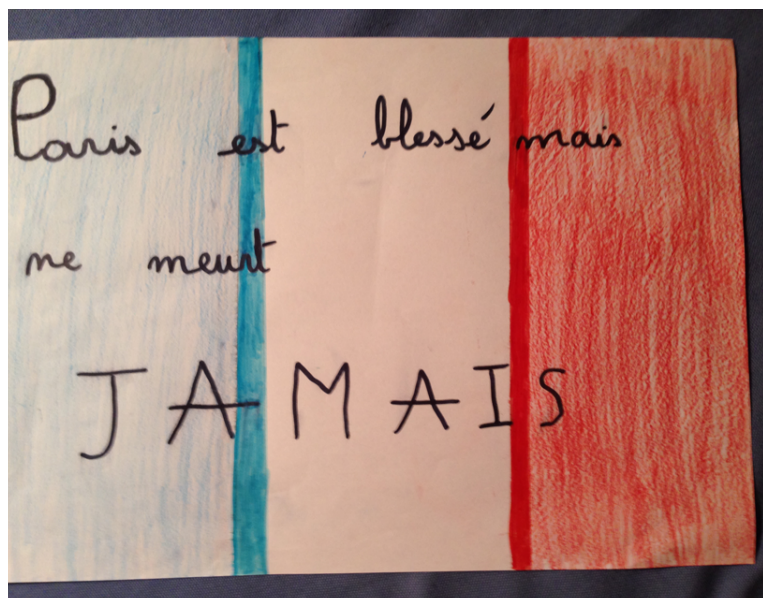 Paris est blessé mais
ne meurt
JAMAIS